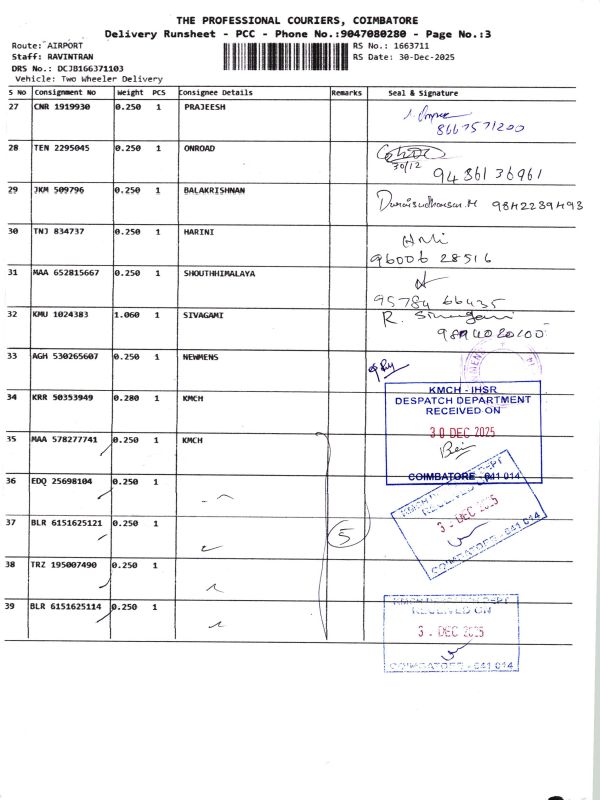 THE PROFESSIONAL COURIERS, COIMBATORE
Delivery Runsheet - PCC - Phone No.:9047080280 - Page No.:3
Route: AIRPORT RS No.: 1663711
Staff: RAVINTRAN RS Date: 30-Dec-2025
DRS No.: DCJB166371103
Vehicle: Two Wheeler Delivery
S No Consignment No Weight PCS Consignee Details Remarks Seal & Signature
27 CNR 1919930 0.250 1 PRAJEESH
8667571200
28 TEN 2295045 0.250 1 ONROAD
30/12 9486136961
29 JKM 509796 0.250 1 BALAKRISHNAN 9842239493
30 TNJ 834737 0.250 1 HARINI
96006 28516
31 MAA 652815667 0.250 1 SHOUTHHIMALAYA
95784 66435
32 KMU 1024383 1.060 1 SIVAGAMI R. Sivagami
9894020100
33 AGH 530265607 0.250 1 NEWMENS
34 KRR 50353949 0.280 1 KMCH
KMCH - IHSR
DESPATCH DEPARTMENT
RECEIVED ON
30 DEC 2025
COIMBATORE - 641 014
35 MAA 578277741 0.250 1 KMCH
36 EDQ 25698104 0.250 1
RECEIVED ON
3 . DEC 2025
COIMBATORE - 641 014
37 BLR 6151625121 0.250 1 5
38 TRZ 195007490 0.250 1
39 BLR 6151625114 0.250 1
RECEIVED ON
3 . DEC 2025
COIMBATORE - 641 014